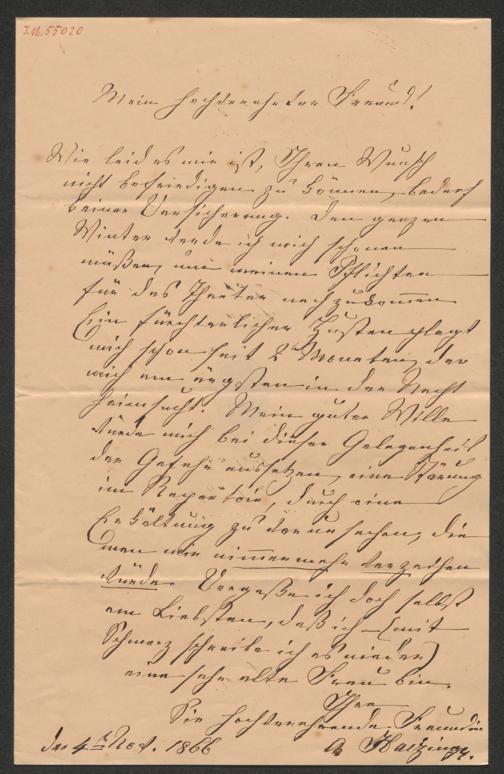 I.N. 55020
Mein hochverehrter Freund!
Wie leid es mir ist, Ihren Wunsch
nicht befriedigen zu können, bedarf
keiner Versicherung. Den ganzen
Winter werde ich mich schonen
müßen, um meinen Pflichten
für das Theater nachzukommen
Ein fürchterlicher Husten plagt
mich schon seit 2 Monaten, der
mich am ärgsten in der Nacht
heimsucht. Mein guter Wille
würde mich bei dieser Gelegenheit
der Gefahr aussetzen, eine Störung
im Repertoir, durch eine
Erkältung zu verursachen, die
man mir nimmermehr verzeihen
würde. Vergeße ich doch selbst
am Liebsten, daß ich – (mit
Schmerz schreibe ich es nieder)
eine sehr alte Frau bin.
Ihre
Sie hochverehrende Freundin
den 4t Nov. 1866 A Haizinger.